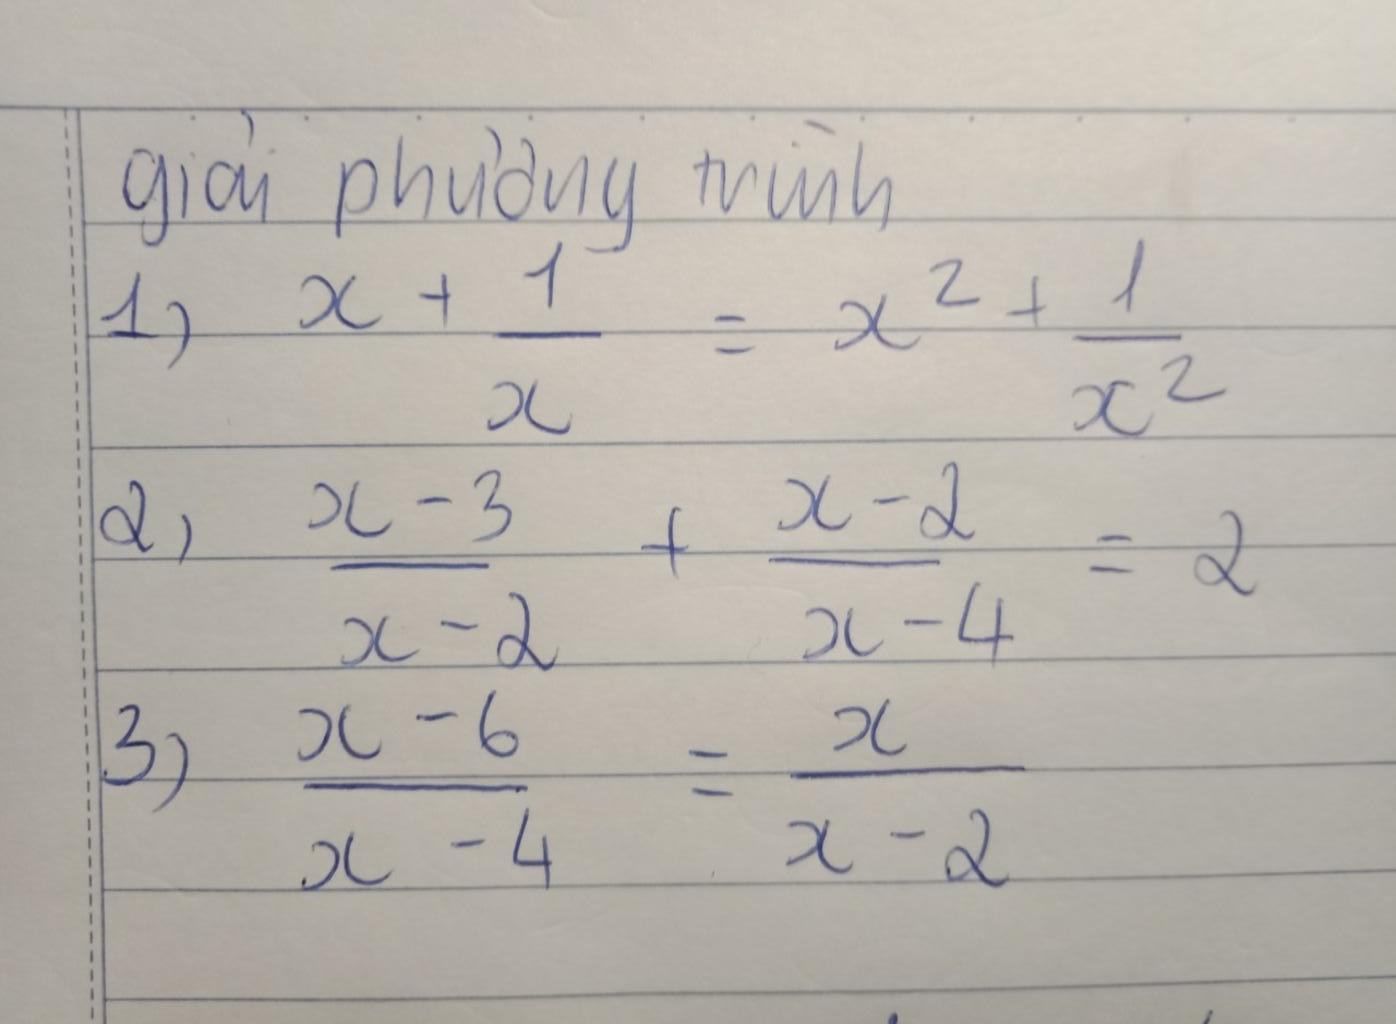 giải phương trình
1) x + 1/x = x² + 1/x²
2) (x - 3)/(x - 2) + (x - 2)/(x - 4) = 2
3) (x - 6)/(x - 4) = x/(x - 2)